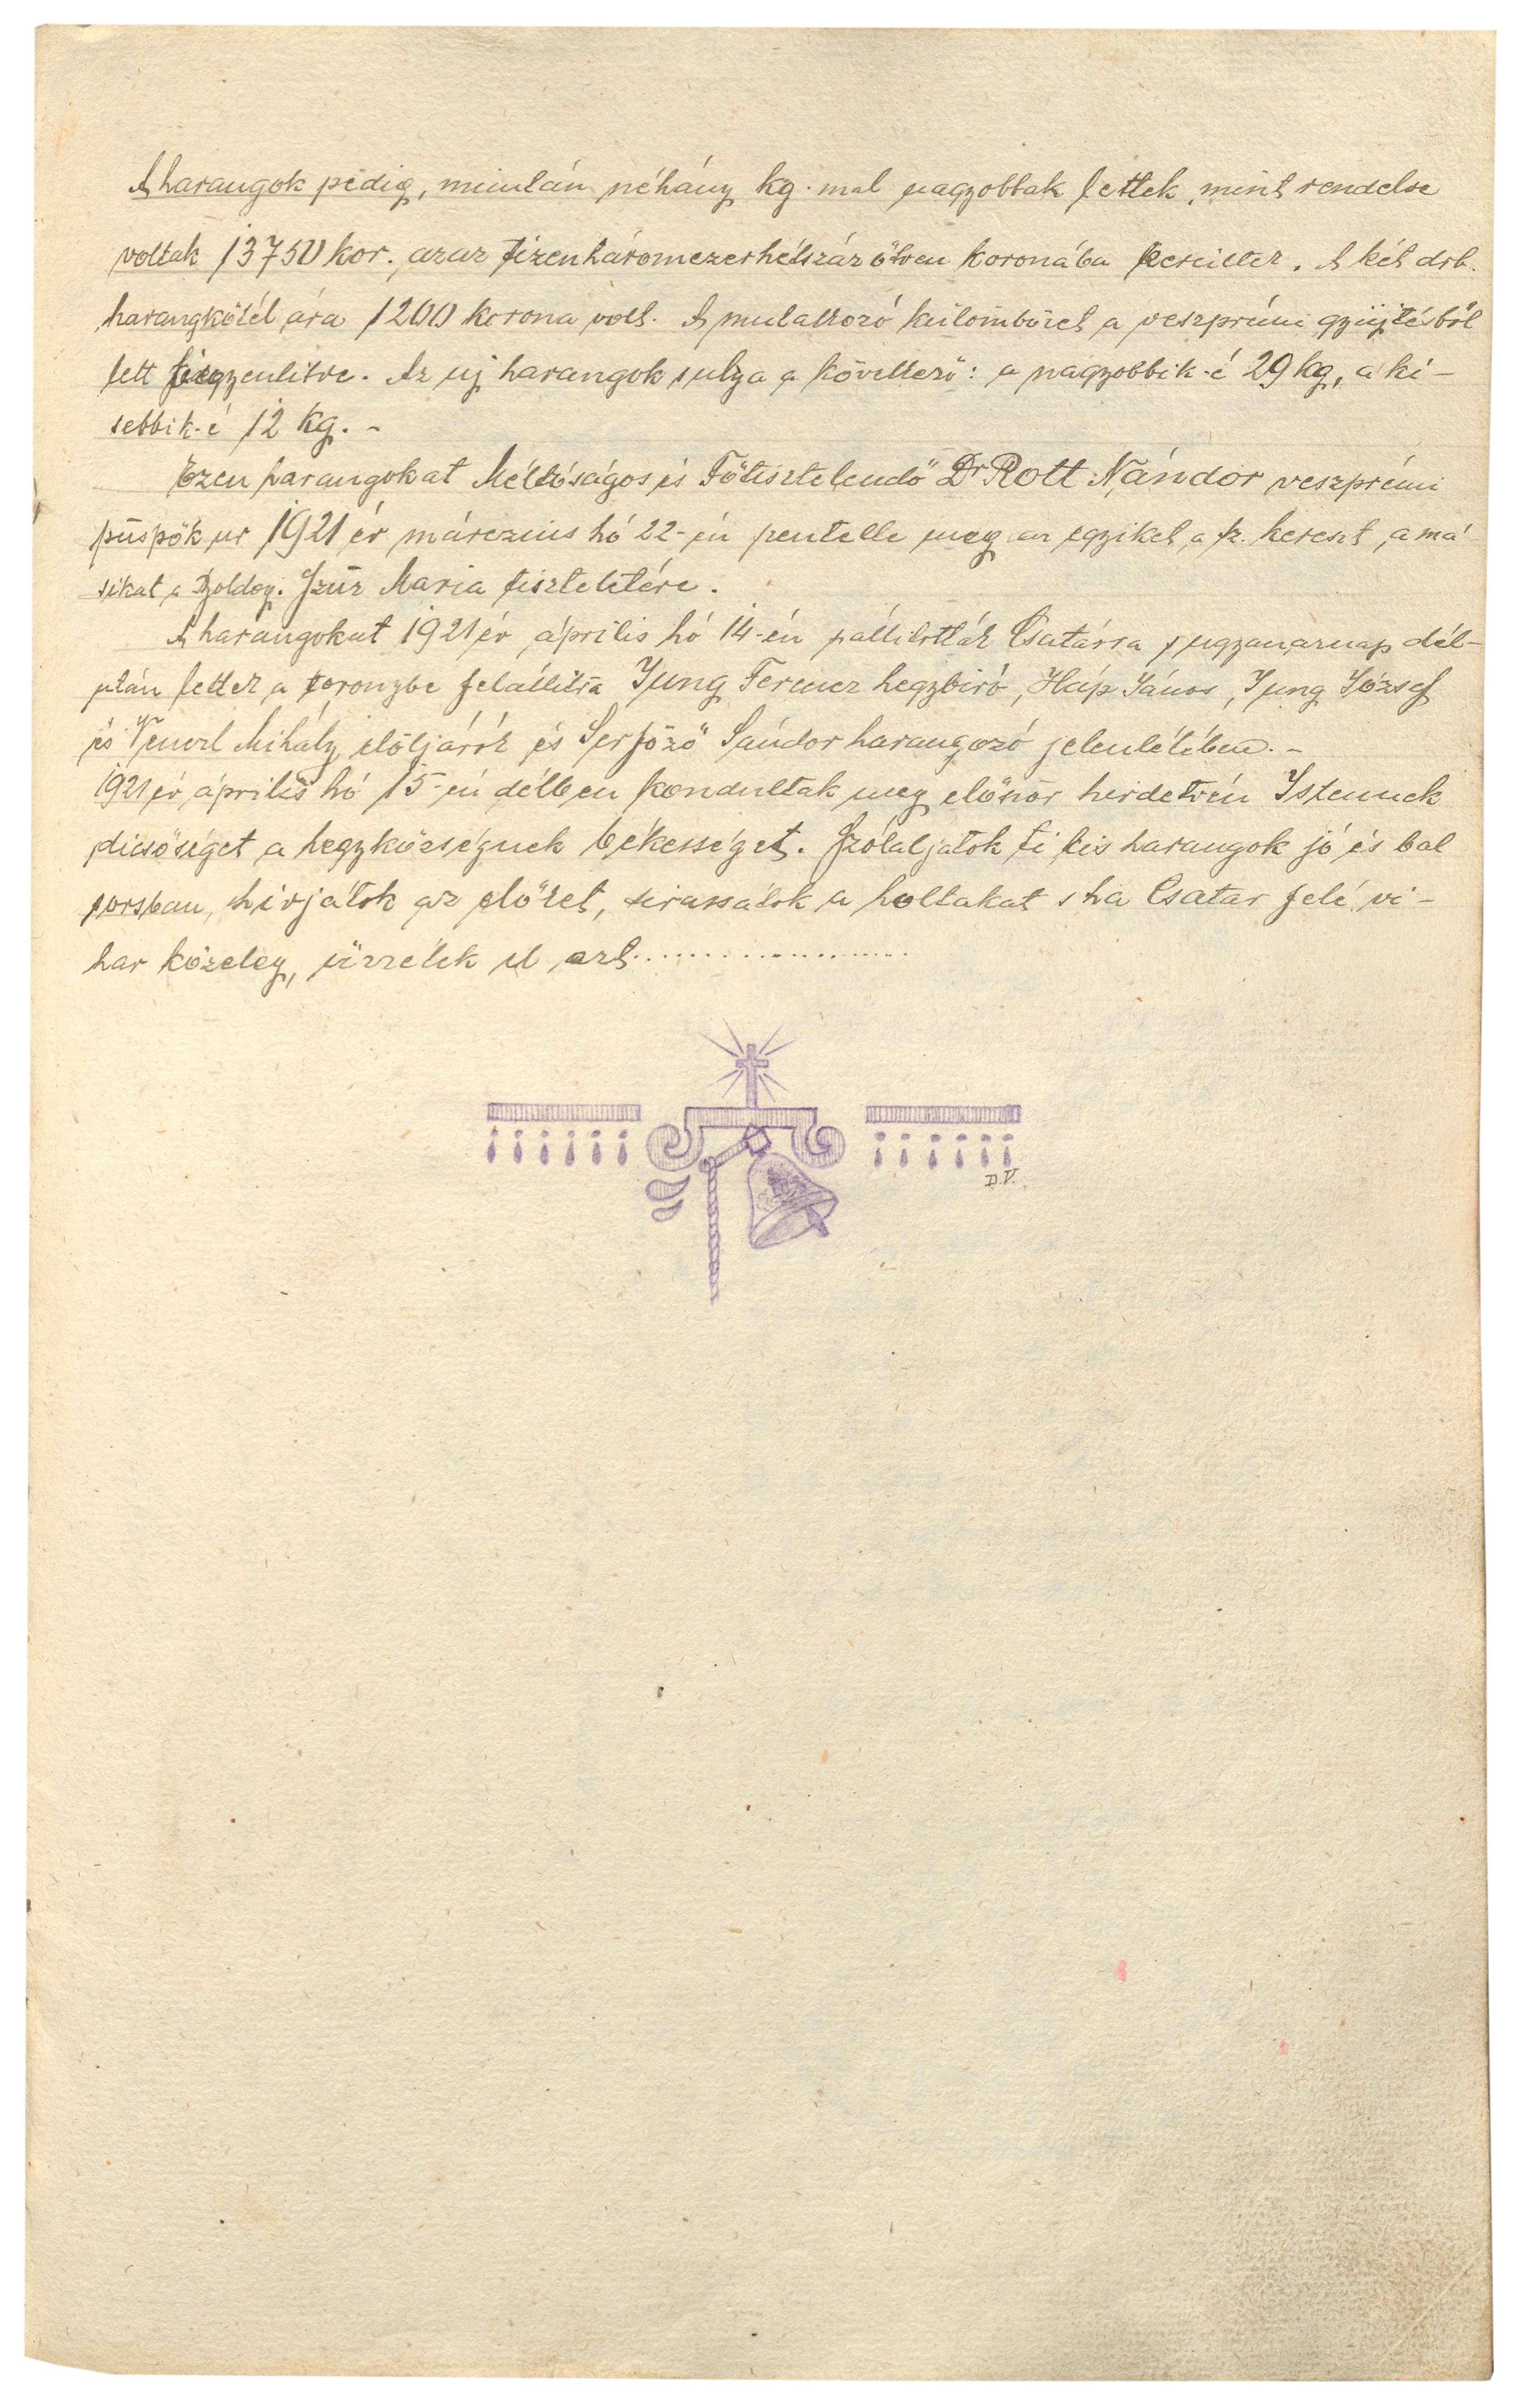 A harangok pedig, miután néhány kg.-mal nagyobbak lettek, mint rendelve
voltak 13750 kor. azaz tizenháromezerhétszázötven koronába kerültek. A két drb.
harangkötél ára 1200 korona volt. A mutatkozó külömbözet a veszprémi gyüjtésből
lett kiegyenlitve. Az uj harangok sulya a következő: a nagyobbik-é 29 kg, a ki-
sebbik-é 12 kg. -
Ezen harangokat Méltóságos és Főtisztelendő Dr Rott Nándor veszprémi
püspök ur 1921 év márczius hó 22-én szentelte meg az egyiket a sz. kereszt, a má-
sikat a Boldog. Szűz Maria tiszteletére.
A harangokat 1921 év április hó 14-én szállitották Csatárra s ugyanaznap dél-
után lettek a toronyba felállitva Jung Ferencz hegybiró, Háp János, Jung József
és Venczl Mihály elöljárók és Serfőző Sándor harangozó jelenlétében. -
1921 év április hó 15-én délben kondultak meg először hirdetvén Istennek
dicsőséget a hegyközségnek békességet. Szólaljatok ti kis harangok jó és bal
sorsban, hivjátok az élőket, sirassátok a holtakat s ha Csatar felé vi-
har közeleg, űzzétek el azt....................
D.V.